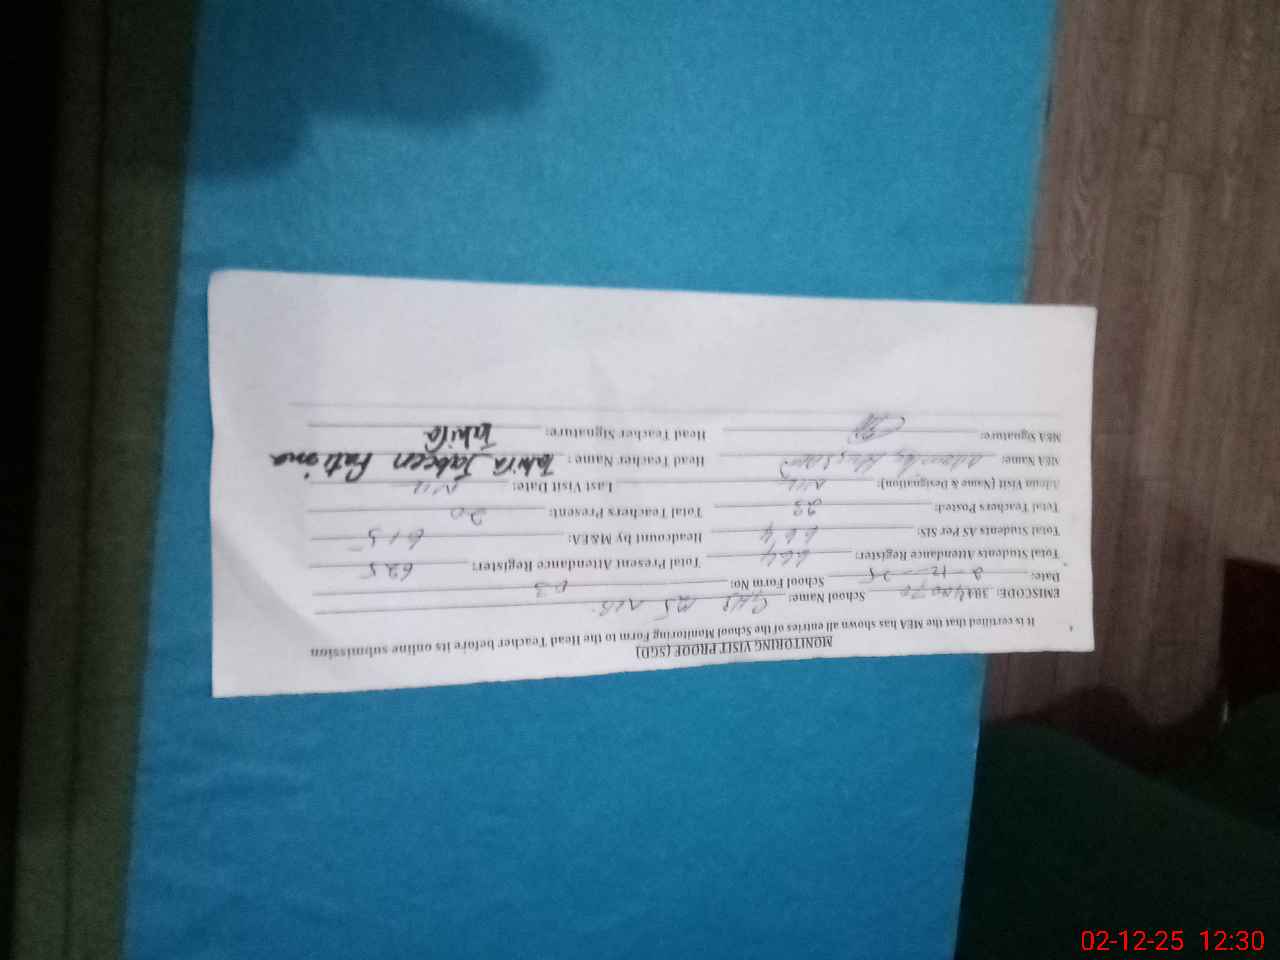 MONITORING VISIT PROOF (SGD)
It is certified that the MEA has shown all entries of the School Monitoring Form to the Head Teacher before its online submission
EMISCODE: 384 School Name:
Date: 2-12-25 School Form No: 03
Total Students Attendance Register: 664 Total Present Attendance Register: 625
Total Students AS Per SIS: 664 Headcount by M&EA: 615
Total Teachers Posted: 23 Total Teachers Present: 20
Admin Visit (Name & Designation): Nil Last Visit Date: Nil
MEA Name: Head Teacher Name: Tahira Jabeen Fatima
MEA Signature: Head Teacher Signature: Tahira
02-12-25 12:30